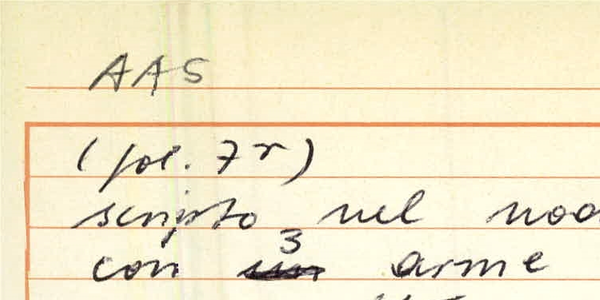 AAS
(fol. 7r)
scripto nel
con 3 arme